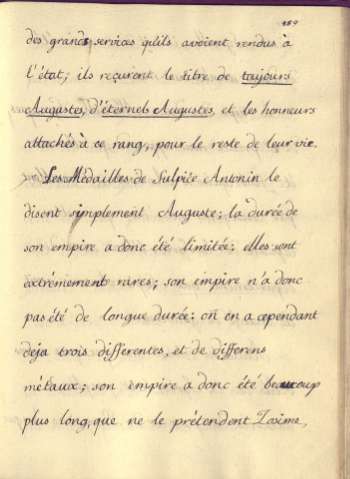 159
des grands services qu'ils avoient rendus à
l'état; ils reçurent le titre de toujours
Augustes, d'éternels Augustes, et les honneurs
attachés à ce rang, pour le reste de leur vie.
Les Médailles de Sulpice Antonin le
disent simplement Auguste; la durée de
son empire a donc été limitée: elles sont
extrémement rares; son empire n'a donc
pas été de longue durée: on en a cependant
deja trois differentes, et de differens
métaux; son empire a donc été beaucoup
plus long, que ne le prétendent Zosime,